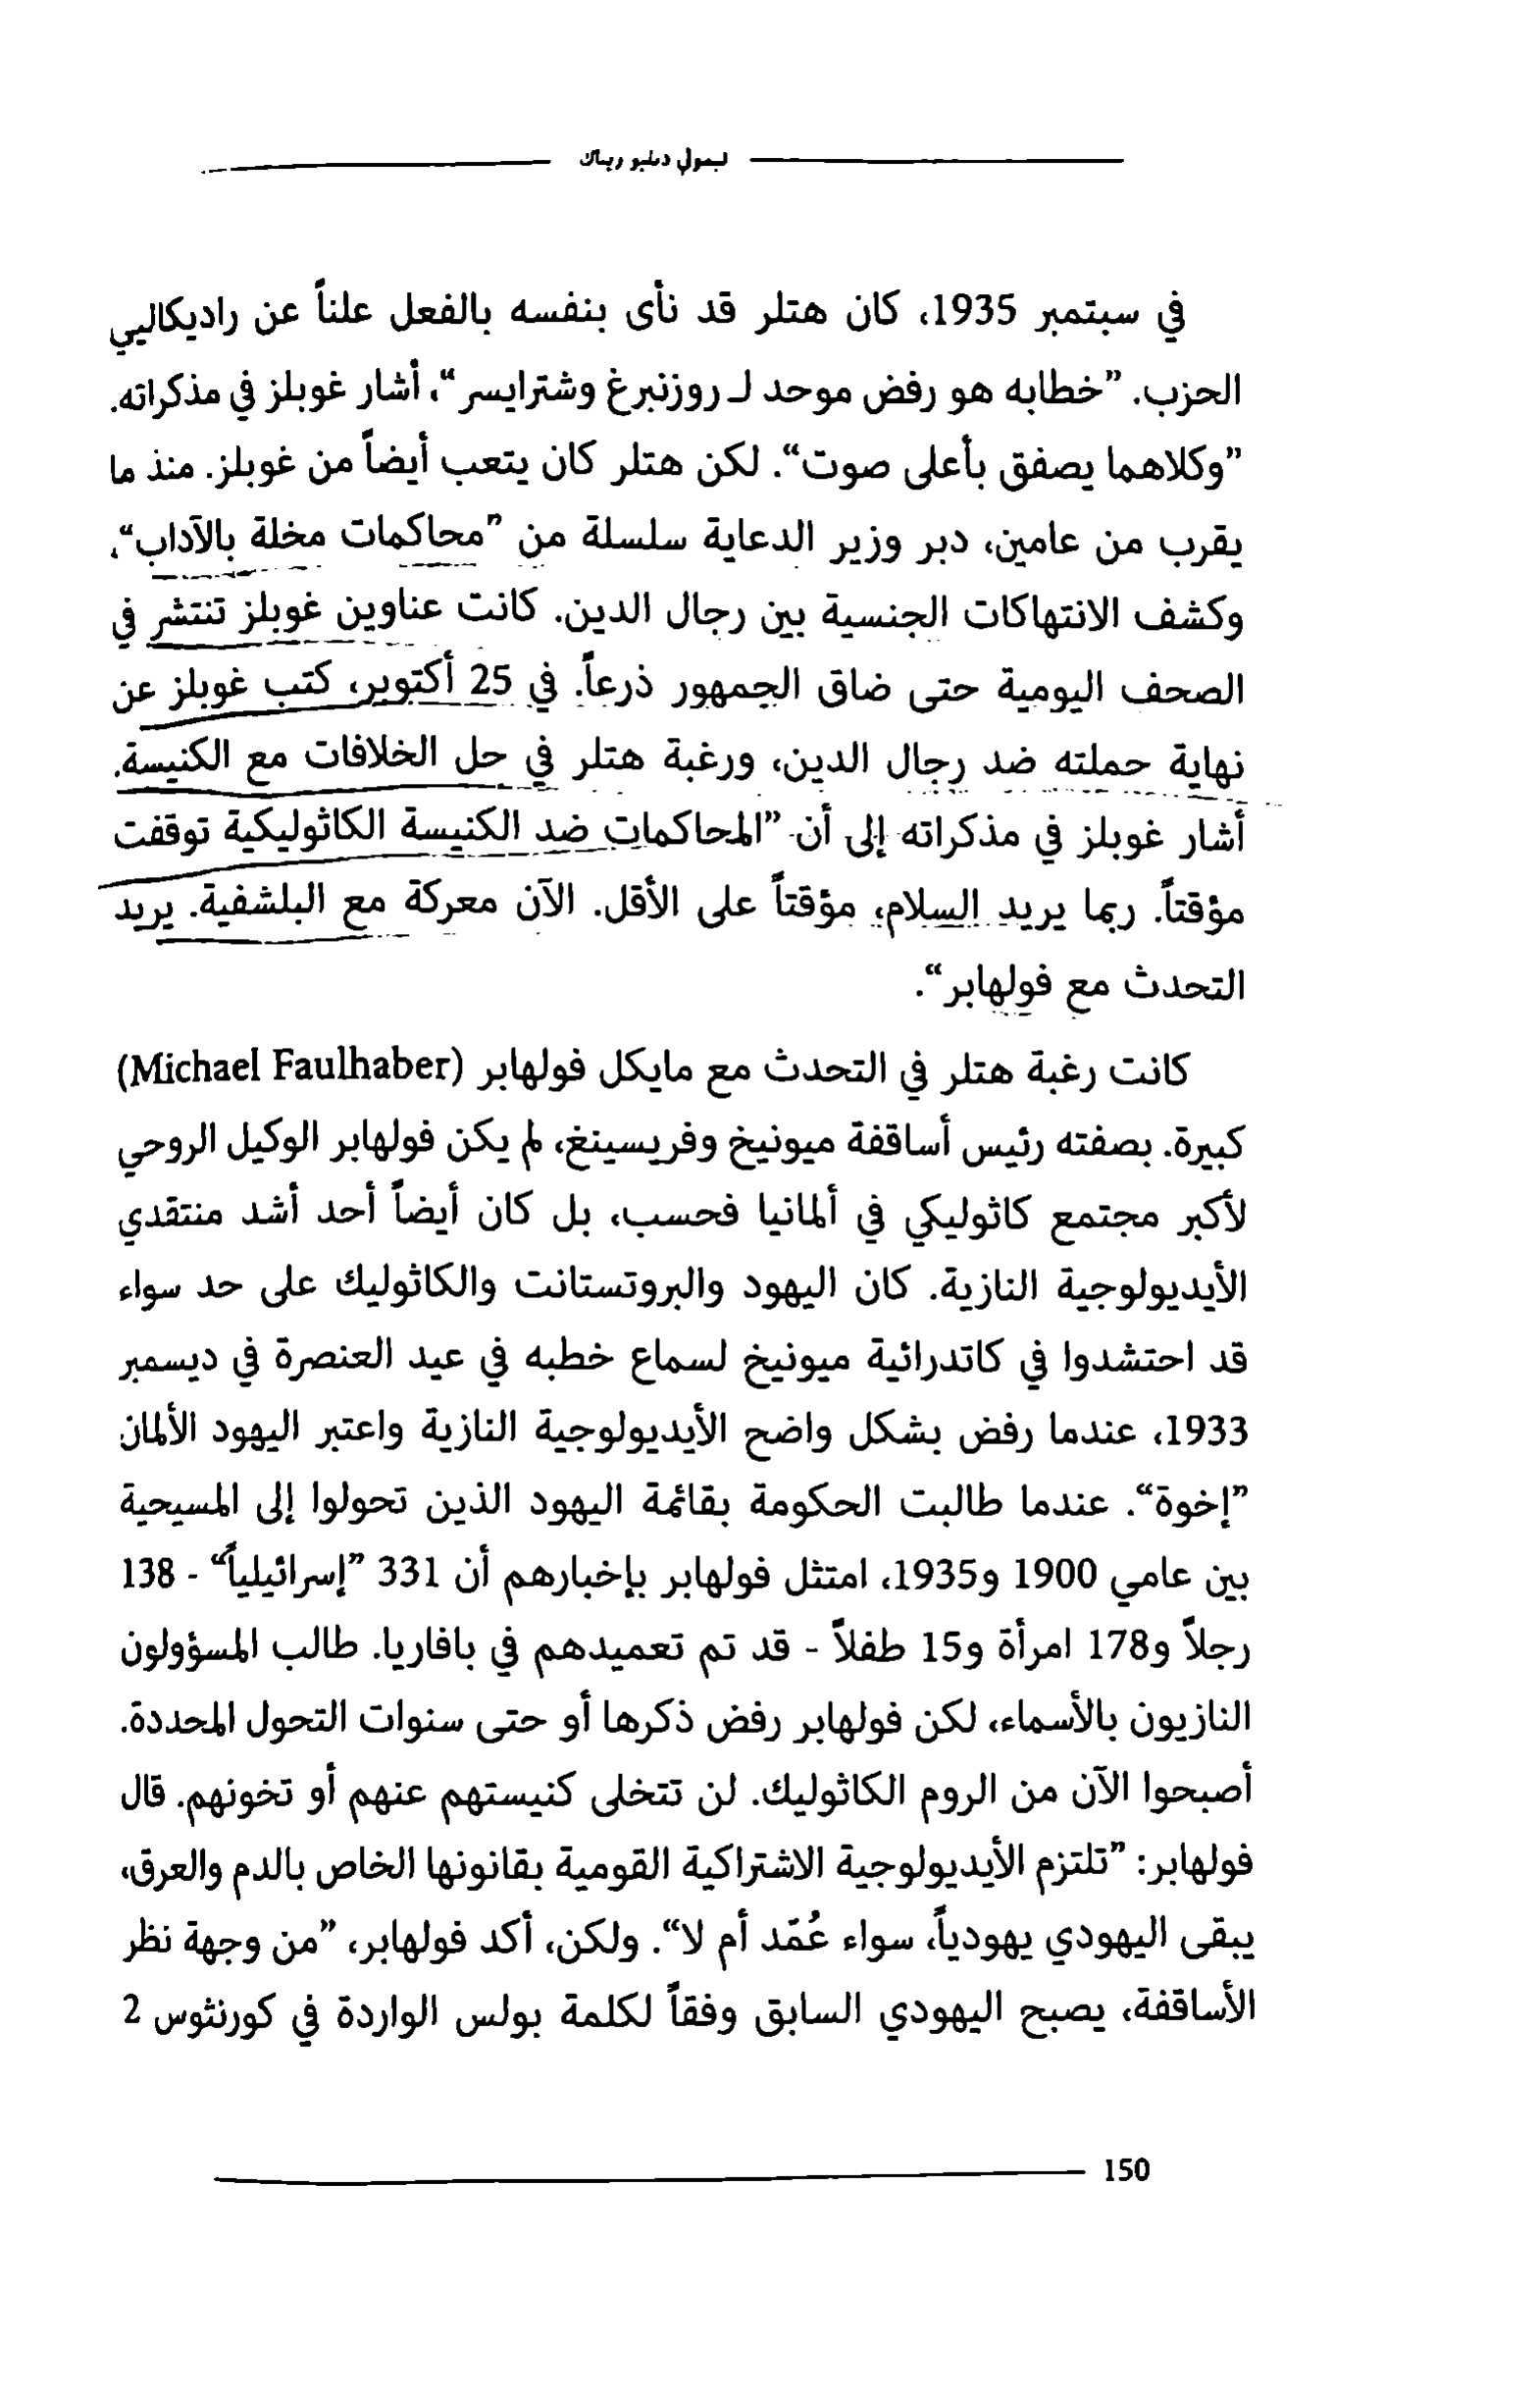 في سبتمبر 1935، كان هتلر قد نأى بنفسه بالفعل علناً عن راديكاليي
الحزب. ”خطابه هو رفض موحد لـ روزنبرغ وشترايسر“، أشار غوبلز في مذكراته.
”وكلاهما يصفق بأعلى صوت“. لكن هتلر كان يتعب أيضاً من غوبلز. منذ ما
يقرب من عامين، دبر وزير الدعاية سلسلة من ”محاكمات مخلة بالآداب“،
وكشف الانتهاكات الجنسية بين رجال الدين. كانت عناوين غوبلز تنتشر في
الصحف اليومية حتى ضاق الجمهور ذرعاً. في 25 أكتوبر، كتب غوبلز عن
نهاية حملته ضد رجال الدين، ورغبة هتلر في حل الخلافات مع الكنيسة.
أشار غوبلز في مذكراته إلى أن ”المحاكمات ضد الكنيسة الكاثوليكية توقفت
مؤقتاً. ربما يريد السلام، مؤقتاً على الأقل. الآن معركة مع البلشفية. يريد
التحدث مع فولهابر“.
كانت رغبة هتلر في التحدث مع مايكل فولهابر (Michael Faulhaber)
كبيرة. بصفته رئيس أساقفة ميونيخ وفريسينغ، لم يكن فولهابر الوكيل الروحي
لأكبر مجتمع كاثوليكي في ألمانيا فحسب، بل كان أيضاً أحد أشد منتقدي
الأيديولوجية النازية. كان اليهود والبروتستانت والكاثوليك على حد سواء
قد احتشدوا في كاتدرائية ميونيخ لسماع خطبه في عيد العنصرة في ديسمبر
1933، عندما رفض بشكل واضح الأيديولوجية النازية واعتبر اليهود الألمان
”إخوة“. عندما طالبت الحكومة بقائمة اليهود الذين تحولوا إلى المسيحية
بين عامي 1900 و1935، امتثل فولهابر بإخبارهم أن 331 ”إسرائيلياً“ - 138
رجلاً و178 امرأة و15 طفلاً - قد تم تعميدهم في بافاريا. طالب المسؤولون
النازيون بالأسماء، لكن فولهابر رفض ذكرها أو حتى سنوات التحول المحددة.
أصبحوا الآن من الروم الكاثوليك. لن تتخلى كنيستهم عنهم أو تخونهم. قال
فولهابر: ”تلتزم الأيديولوجية الاشتراكية القومية بقانونها الخاص بالدم والعرق،
يبقى اليهودي يهودياً، سواء عُمّد أم لا“. ولكن، أكد فولهابر، ”من وجهة نظر
الأساقفة، يصبح اليهودي السابق وفقاً لكلمة بولس الواردة في كورنثوس 2
150